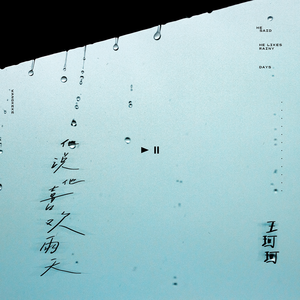 HE
SAID
HE LIKES
RAINY
DAYS.
他说他喜欢雨天
王珂珂